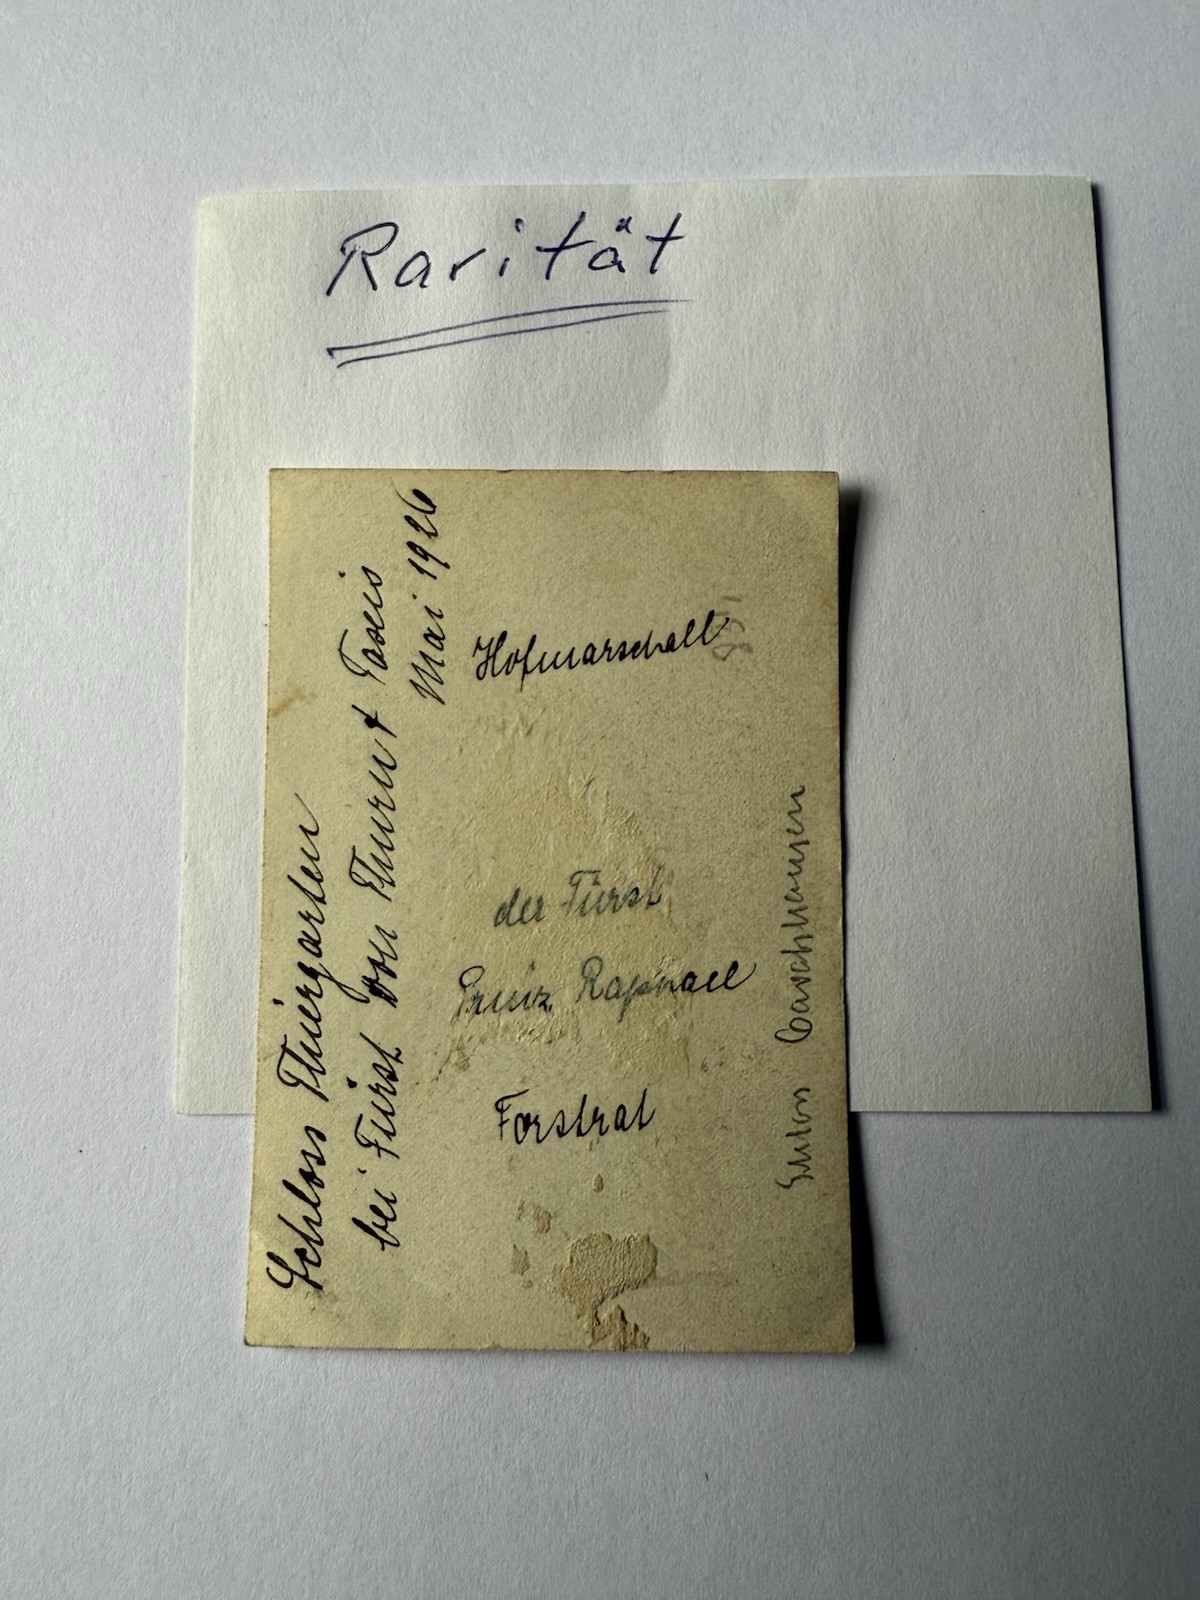 Rarität
Schloss Thiergarten
bei Fürst von Thurn + Taxis
Mai 1926
Hofmarschall
der Fürst
Prinz Raphael
Forstrat